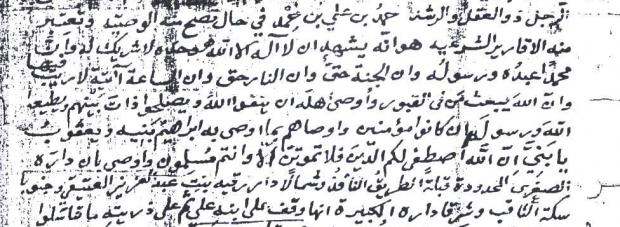 الرجل ذو العقل والرشد حمد بن علي بن محمد في حال تصح منه الوصية وتعتبر
منه الاقارير الشرعيه هو انه يشهد ان لا اله الا الله وحده لا شريك له وان
محمدا عبده ورسوله وان الجنة حق وان النار حق وان الساعة آتية لا ريب فيها
وان الله يبعث من في القبور وأوصى اهله ان يتقوا الله ويصلحوا ذات بينهم ويطيعوا
الله ورسوله ان كانوا مؤمنين واوصاهم بما اوصى به ابراهيم بنيه ويعقوب
يا بني ان الله اصطفى لكم الدين فلا تموتن الا وانتم مسلمون واوصى بان داره
الصغرى المحدودة قبلة الطريق النافذ وشمالا دار رقيه بنت عبد العزيز العتيقي وجنوبا
سكة الثاقب وشرقا داره الكبيرة انها وقف على ابنه علي ثم على ذريته ما تناسلوا